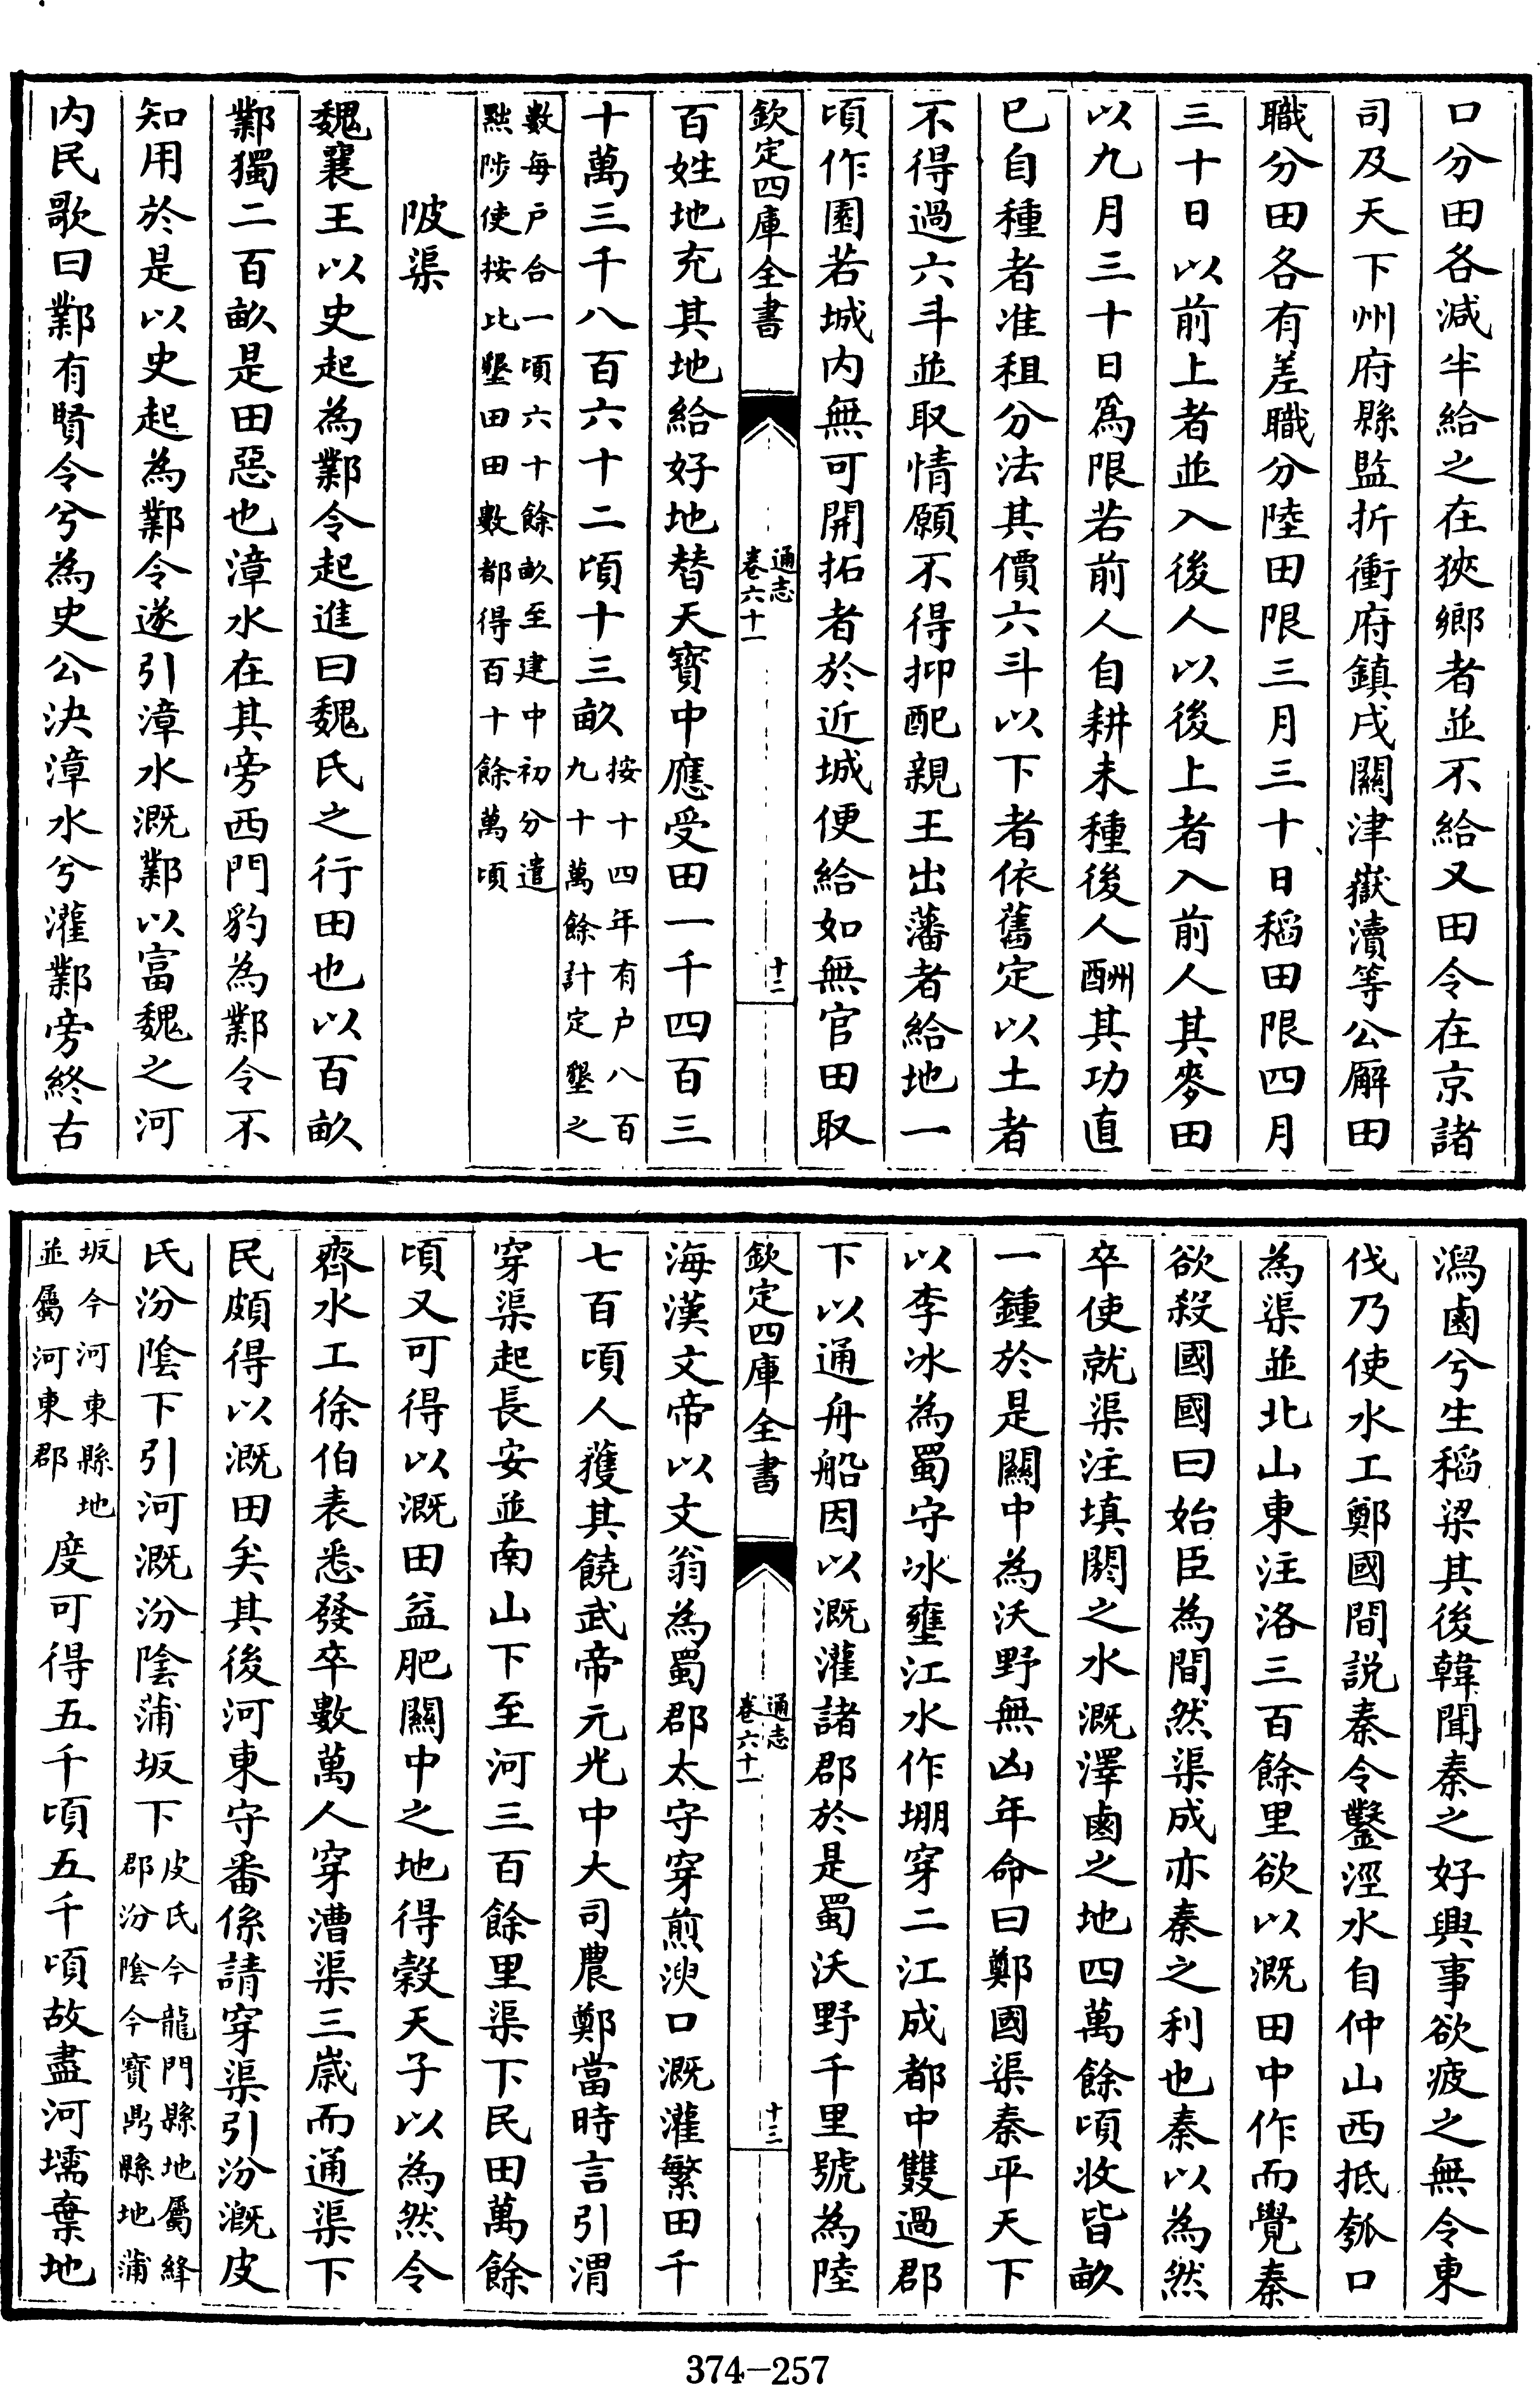 口分田各減半給之在狹鄉者並不給又田令在京諸
司及天下州府縣監折衝府鎮戍關津嶽瀆等公廨田
職分田各有差職分陸田限三月三十日稻田限四月
三十日以前上者並入後人以後上者入前人其麥田
以九月三十日爲限若前人自耕未種後人酬其功直
已自種者准租分法其價六斗以下者依舊定以土者
不得過六斗並取情願不得抑配親王出藩者給地一
頃作園若城內無可開拓者於近城便給如無官田取
欽定四庫全書
通志
卷六十一
十二
百姓地充其地給好地替天寶中應受田一千四百三
十萬三千八百六十二頃十三畝按十四年有户八百
九十萬餘計定墾之
數每户合一頃六十餘畝至建中初分遣
黜陟使按比墾田田數都得百十餘萬頃
陂渠
魏襄王以史起為鄴令起進曰魏氏之行田也以百畝
鄴獨二百畝是田惡也漳水在其旁西門豹為鄴令不
知用於是以史起為鄴令遂引漳水溉鄴以富魏之河
內民歌曰鄴有賢令兮為史公決漳水兮灌鄴旁終古
潟鹵兮生稻粱其後韓聞秦之好興事欲疲之無令東
伐乃使水工鄭國間說秦令鑿涇水自仲山西抵瓠口
為渠並北山東注洛三百餘里欲以溉田中作而覺秦
欲殺國國曰始臣為間然渠成亦秦之利也秦以為然
卒使就渠注填閼之水溉澤鹵之地四萬餘頃收皆畝
一鍾於是關中為沃野無凶年命曰鄭國渠秦平天下
以李冰為蜀守冰壅江水作堋穿二江成都中雙過郡
下以通舟船因以溉灌諸郡於是蜀沃野千里號為陸
欽定四庫全書
通志
卷六十一
十三
海漢文帝以文翁為蜀郡太守穿煎溲口溉灌繁田千
七百頃人獲其饒武帝元光中大司農鄭當時言引渭
穿渠起長安並南山下至河三百餘里渠下民田萬餘
頃又可得以溉田益肥關中之地得穀天子以為然令
齊水工徐伯表悉發卒數萬人穿漕渠三歲而通渠下
民頗得以溉田矣其後河東守番係請穿渠引汾溉皮
氏汾陰下引河溉汾陰蒲坂下皮氏今龍門縣地屬絳
郡汾陰今寶鼎縣地蒲
坂今河東縣地
並屬河東郡度可得五千頃五千頃故盡河壖棄地
374-257